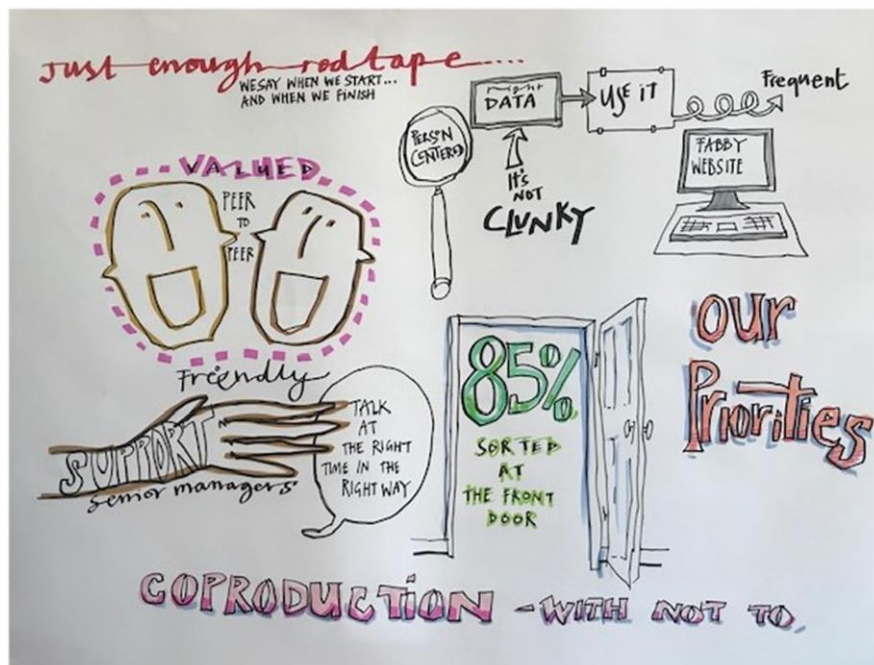 just enough red tape....
WE SAY WHEN WE START...
AND WHEN WE FINISH
PERSON
CENTERED
right
DATA
USE IT
Frequent
IT'S
NOT
CLUNKY
FABBY
WEBSITE
VALUED
PEER
TO
PEER
Friendly
SUPPORT
senior managers
TALK
AT
THE RIGHT
TIME IN THE
RIGHT WAY
85%
SORTED
AT
THE FRONT
DOOR
our
Priorities
COPRODUCTION - WITH NOT TO